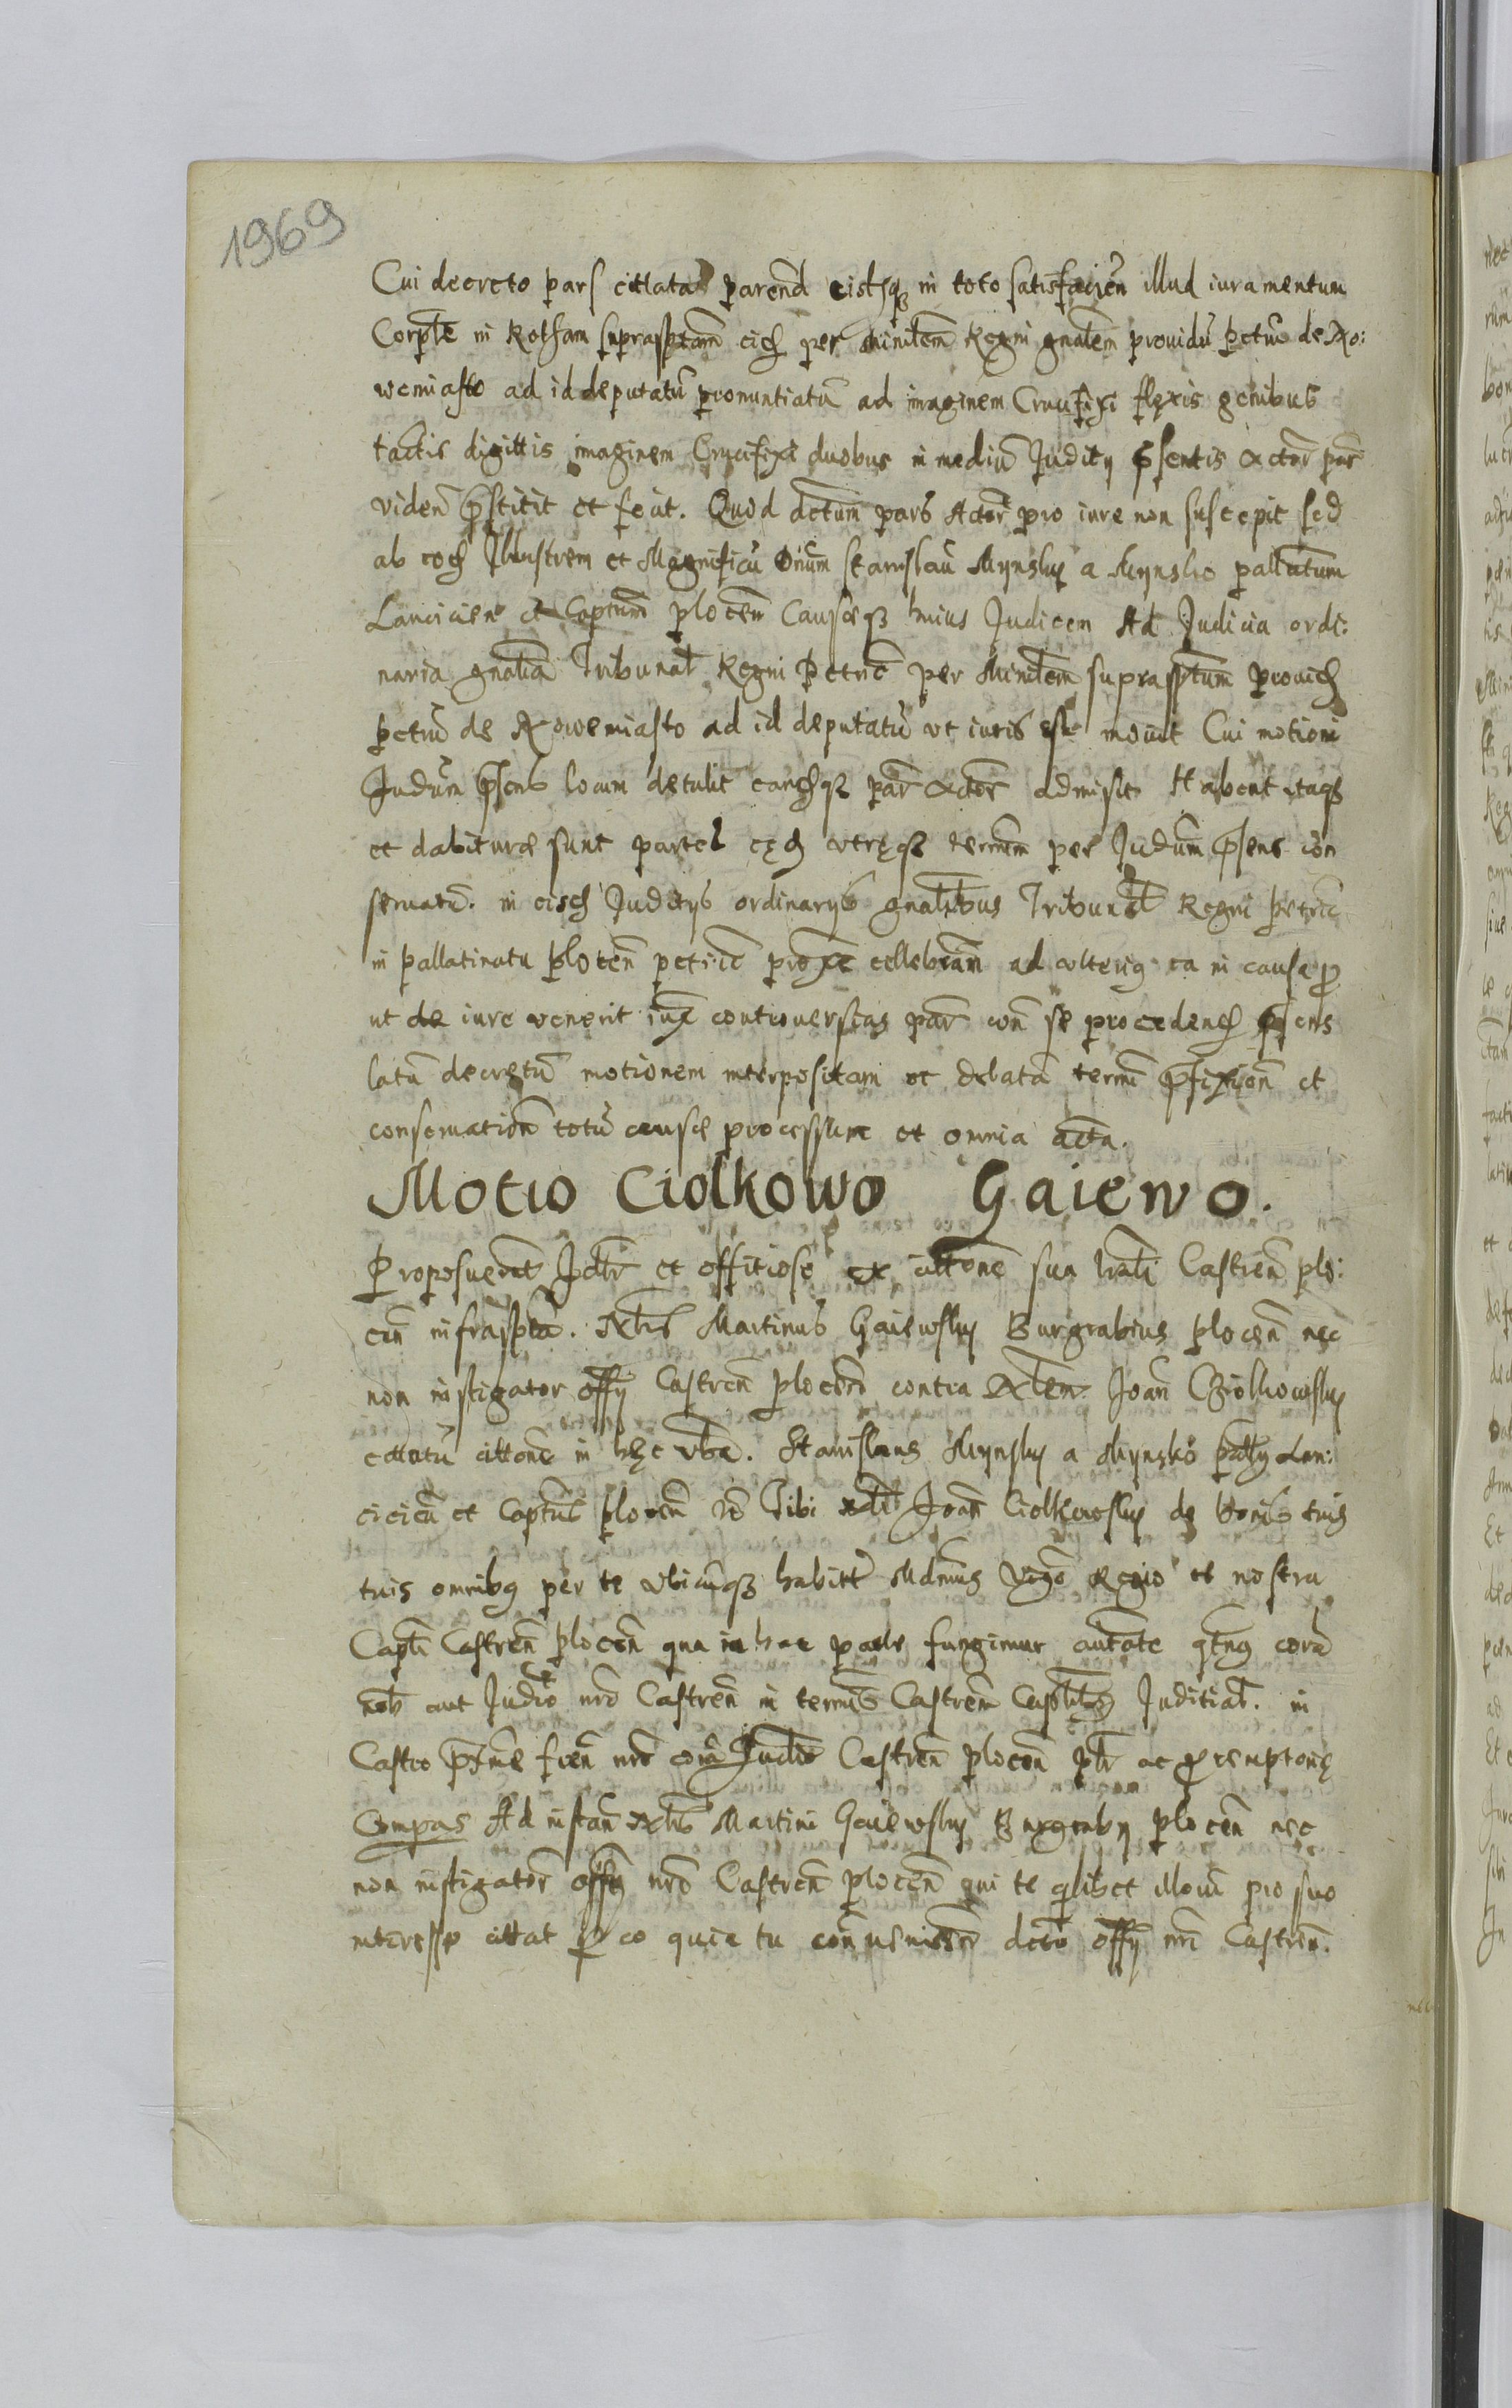 1969
Cui decreto pars cittata parend eistsq in toto satisfacien illud iuramentum
Corple in Rotham suprasptam eid per ministem Regni gnalem providu Petru de No:
wemiasto ad id deputatu pronuntiatu ad imaginem Crucifixi flexis genibus
tactis digittis imaginem Crucifixi duobus in mediu Judity psentis actor par
viden pstitit et fecit. Quod dctum pars Actor pro iure non suscepit sed
ab eod Illustrem et Magnificu Dnum Stanislau Mynsky a Mynsko pallatum
Lancicien et Captum plocen Causeq huius Judicem Ad Judicia ordi:
naria gnalia Tribunal Regni Petric per Ministem suprasptum provid
Petru de Nowemiasto ad id deputatu ut iuris est movit Cui motioni
Judum psens locum detulit eandq par actor admisit Habent itaq
et dabiturae sunt partes eed utreq termm per Judum psens con
servatu. in eisd Juditys ordinarys gnalibus Tribunal Regni Petric
in pallatinatu plocen petric proxe cellebran ad ulterig ea in causa p
ut de iure venerit iux controversias par con se procedend psens
latu decretu motionem interpositam et delata termi pfixion et
conservation totu causae processum et omnia acta.
Motio Ciolkowo Gaiewo.
Proposuerut Judr et offitiose ex cittone sua lrali Castren plo:
cen infraspta. Nblis Martinus Gaiewsky Burgrabius plocen nec
non instigator offy Castren plocen contra Nblem Joan Cziolkowsky
cittatu cittone in hec vba. Stanislaus Mynsky a Mynsko pallty Lan:
cicien et Captnus plocen Tibi nbli Joan Ciolkowsky de bonis tuis
tuis omnibq per te ubicuq habitt Mdmus vigo Regio et nostra
Captli Castren plocen qua in hac parte fungimur autate qtnq cora
nob aut Judio nro Castren in termis Castren Captlibq Juditial. in
Castro pxime fien nro cora Judio Castren plocen ptr ac peremptorie
Compas Ad instan nblis Martini Gaiewsky Burgraby plocen nec
non instigator offy nro Castren plocen qui te qlibet illoru pro suo
interesse cittat p eo quia tu dcto offy nri Castren.